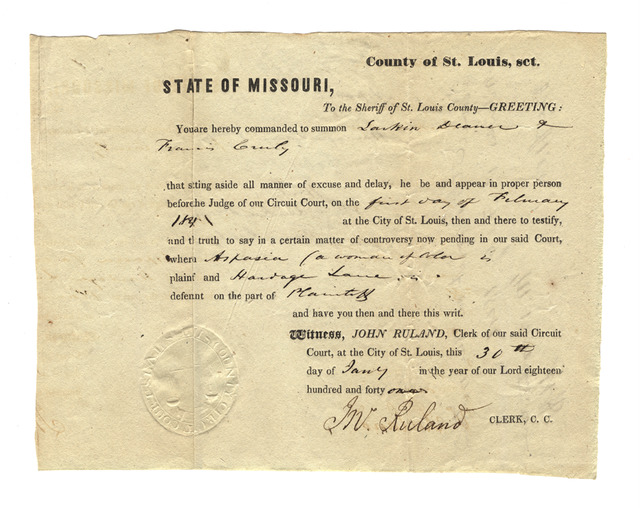 County of St. Louis, sct.
STATE OF MISSOURI,
To the Sheriff of St. Louis County—GREETING:
You are hereby commanded to summon Larkin Deaver &
Francis
that sitting aside all manner of excuse and delay, he be and appear in proper person
before the Judge of our Circuit Court, on the first day of February
1841 at the City of St. Louis, then and there to testify,
and th truth to say in a certain matter of controversy now pending in our said Court,
where Aspasia (a woman of Color is
plaintf and Hardage Lane is
defennt on the part of Plaintiff
and have you then and there this writ.
Witness, JOHN RULAND, Clerk of our said Circuit
Court, at the City of St. Louis, this 30th
day of Jany in the year of our Lord eighteen
hundred and forty one
Jno. Ruland CLERK, C. C.